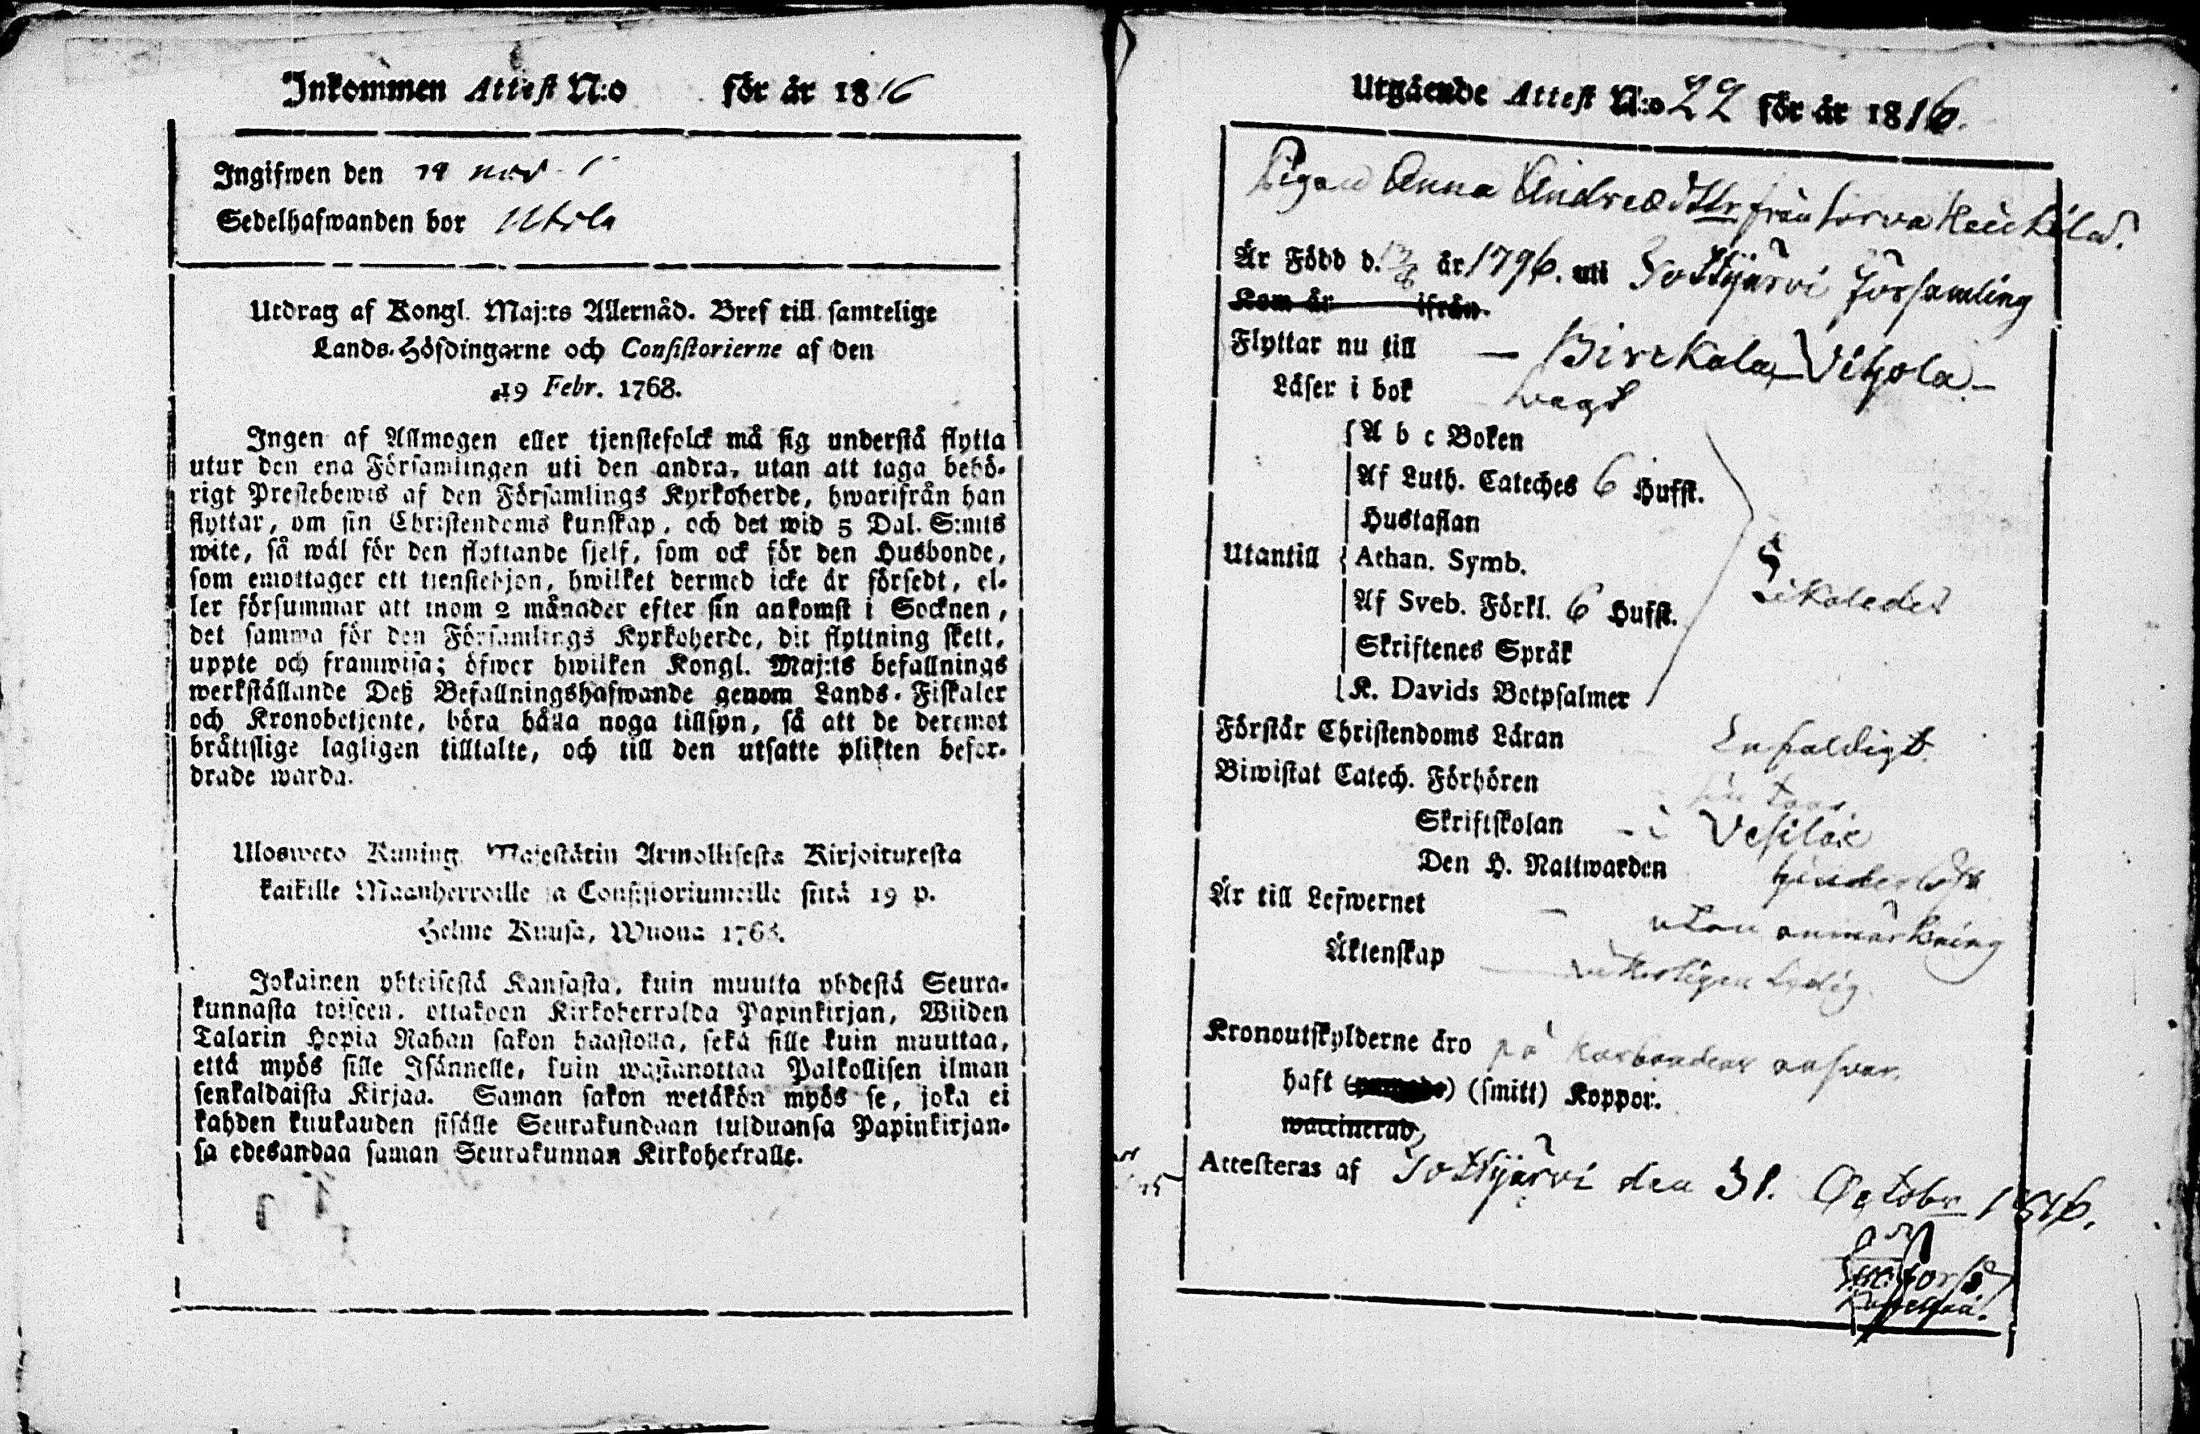 Inkommen Attest N:o för år 1816
Ingifwen den 14 nov.
Sedelhafwanden bor
Utdrag af Kongl. Maj:ts Allernåd. Bref till samtelige
Lands-Höfdingarne och Consistorierne af den
19 Febr. 1768.
Ingen af Allmogen eller tjenstefolck må sig understå flytta
utur den ena Församlingen uti den andra, utan att taga behö-
rigt Prestebewis af den Församlings Kyrkoherde, hwarifrån han
flyttar, om sin Christendoms kunskap, och det wid 5 Dal. S:mts
wite, så wäl för den flyttande sjelf, som ock för den Husbonde,
som emottager ett tienstehjon, hwilket dermed icke är försedt, el-
ler försummar att inom 2 månader efter sin ankomst i Socknen,
det samma för den Församlings Kyrkoherde, dit flyttning skett,
uppte och framwisa; öfwer hwilken Kongl. Maj:ts befallnings
werkställande Deß Befallningshafwande genom Lands-Fiskaler
och Kronobetjente, böra hålla noga tillsyn, så att de deremot
bråttslige lagligen tilltalte, och till den utsatte plikten befor-
drade warda.
Ulosweto Kuning. Majestätin Armollisesta Kirjoituxesta
kaikille Maanherroille ja Consistoriumeille siitä 19 p.
Helme Kuusa, Wuona 1768.
Jokainen yhteisestä Kansasta, kuin muutta yhdestä Seura-
kunnasta toiseen, ottakoon Kirkoherralda Papinkirjan, Wiiden
Talarin Hopia Rahan sakon haastolla, sekä sille kuin muuttaa,
että myös sille Isännelle, kuin wastanottaa Palkollisen ilman
senkaldaista Kirjaa. Saman sakon wetäkön myös se, joka ei
kahden kuukauden sisälle Seurakundaan tulduansa Papinkirjan-
sa edesandaa saman Seurakunnan Kirkoherralle.
Utgående Attest N:o 22 för år 1816.
Pigan Anna Andreæ dttr från
Är Född d. 13/8 år 1796. uti Tottijärvi Församling
Kom år ifrån
Flyttar nu till — Birckala, Vihola.
Läser i bok svagt
A b c Boken
Af Luth. Cateches 6 Hufst.
Hustaflan
Utantill Athan. Symb.
Af Sveb. Förkl. 6 Hufst.
Skriftenes Språk
K. Davids Botpsalmer
Likaledes
Förstår Christendoms Läran Enfaldigt
Biwistat Catech. Förhören
Skriftskolan - i Vesilax
Den H. Nattwarden
Är till Lefwernet — utan anmärkning
Äktenskap — Ledig
Kronoutskylderne äro på husbondens answar.
haft (smitt) Koppor.
waccinerad,
Attesteras af Tottijärvi den 31. Octobr 1816.